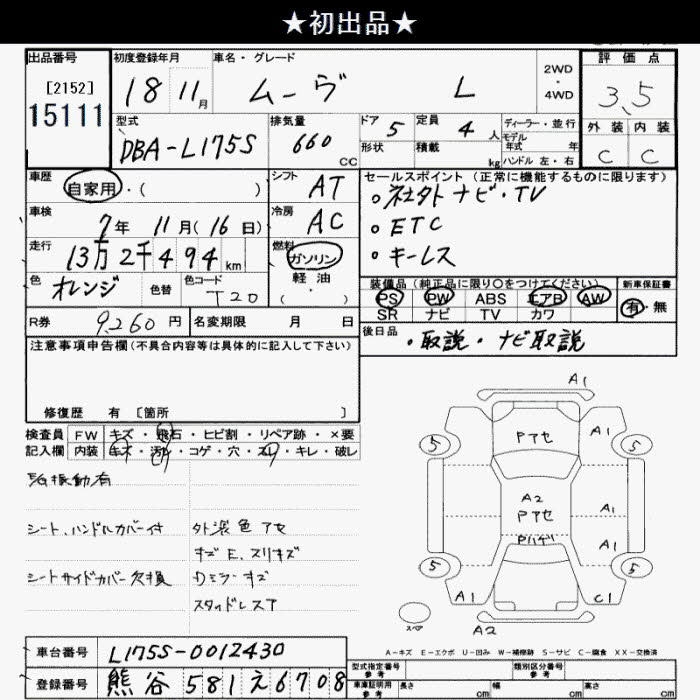 ★初出品★
出品番号
[2152]
15111
初度登録年月
18 11月
車名・グレード
ムーヴ L
2WD
・
4WD
評価点
3.5
外装 内装
C C
型式
DBA-L175S
排気量
660 CC
ドア 5
形状
定員 4人
積載 kg
ディーラー・並行
モデル
年式 年
ハンドル 左・右
車歴
自家用・( )
シフト AT
車検
7年 11月(16日)
冷房 AC
走行
13万2千494km
燃料
ガソリン
軽油
(・)
色
オレンジ
色替
色コード
T20
セールスポイント(正常に機能するものに限ります)
。社外ナビ・TV
。ETC
。キーレス
装備品(純正品に限り○をつけてください)
PS PW ABS エアB AW
SR ナビ TV カワ
新車保証書
有・無
R券 9,260円
名変期限 月 日
後日品
・取説・ナビ取説
注意事項申告欄(不具合内容等は具体的に記入して下さい)
修復歴 有 [箇所 ]
検査員
記入欄
FW キズ・飛石・ヒビ割・リペア跡・×要
内装 キズ・汚レ・コゲ・穴・スレ・キレ・破レ
振動有
シート、ハンドルカバー付
シートサイドカバー欠損
外装色アセ
キズE、スリキズ
Dミラーキズ
スタッドレス
A1
5
Pアセ
A1
5
A2
Pアセ
A1
Pハゲ
A1
5
5
A1
C1
スペア
A2
A-キズ E-エクボ U-凹み W-補修跡 S-サビ C-腐食 XX-交換済
車台番号 L175S-0012430
登録番号 熊谷 581え6708
型式指定番号
参考
類別区分番号
参考
車庫証明用
参考
長さ cm
幅 cm
高さ cm